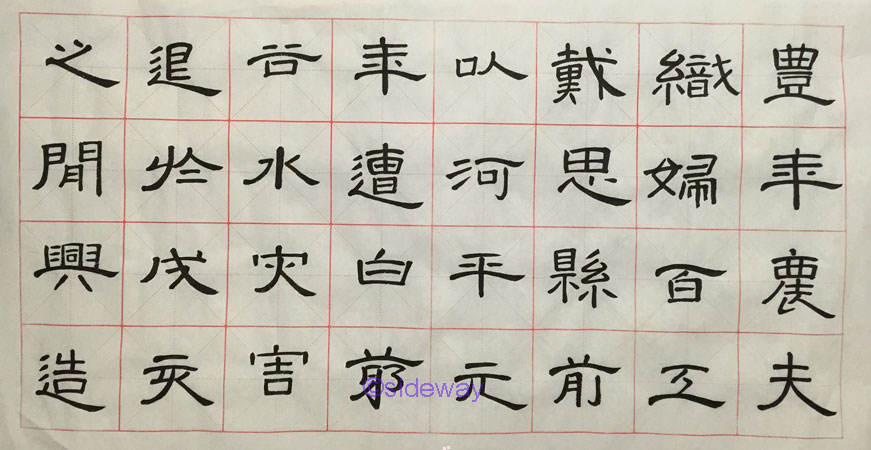 豊年農夫
織婦百工
戴恩縣前
以河平元
年遭白茅
谷水災害
退於戊亥
之閒興造
©sideway